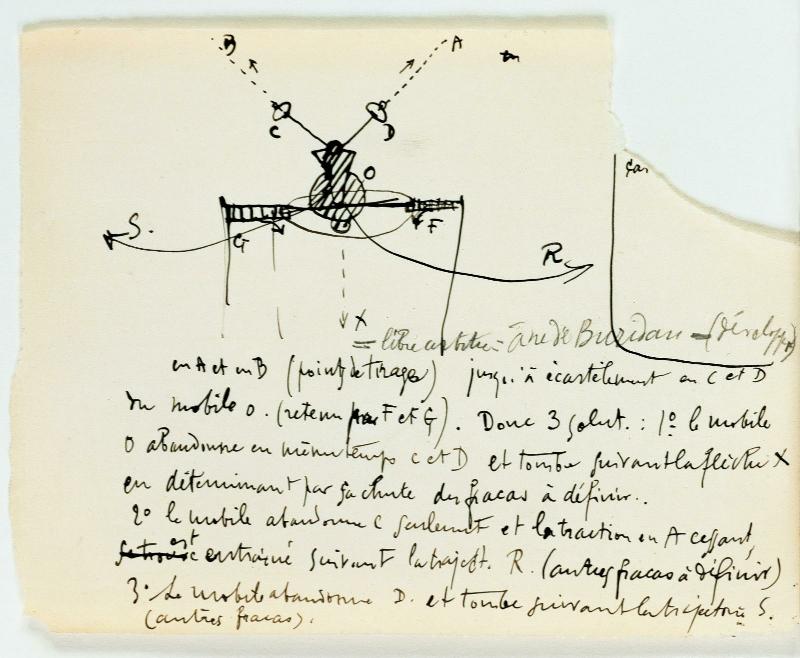 B
A
en
C
D
car
O
S.
G
F
R
X
= libre arbitre = âne de Buridan = (développer)
en A et en B (points de tirage) jusqu'à écartèlement en C et D
du mobile O. (retenu par F et G). Donc 3 solut. : 1º le mobile
O abandonne en même temps C et D et tombe suivant la flèche X
en déterminant par sa chute des fracas à définir..
2º le mobile abandonne C seulement et la traction en A cessant,
est entraîné suivant la traject. R. (autres fracas à définir)
3º Le mobile abandonne D. et tombe suivant la trajectoire S.
(autres fracas).